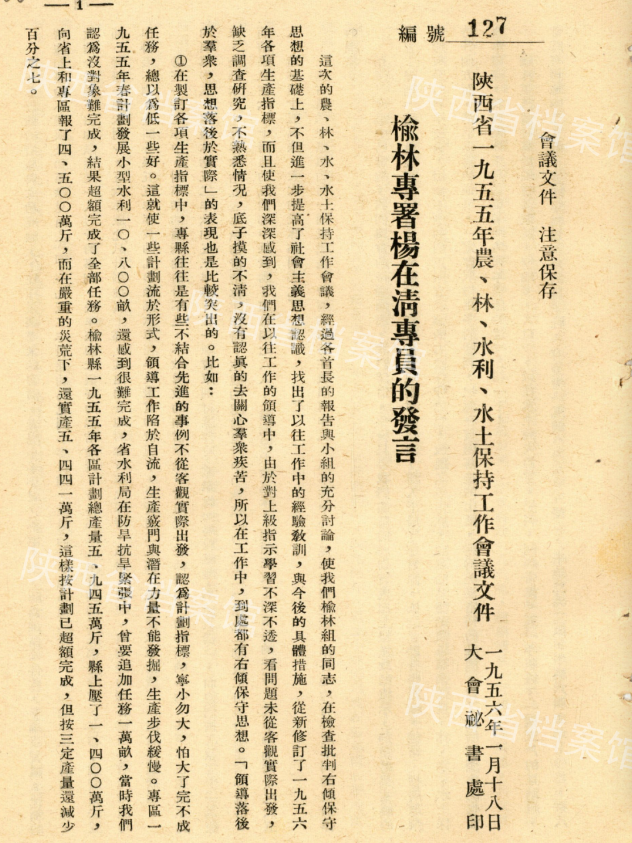 編號 127
會議文件 注意保存
陝西省一九五五年農、林、水利、水土保持工作會議文件
一九五六年一月十八日
大會祕書處印
榆林專署楊在淸專員的發言
這次的農、林、水、水土保持工作會議，經過各首長的報告與小組的充分討論，使我們榆林組的同志，在檢查批判右傾保守
思想的基礎上，不但進一步提高了社會主義思想認識，找出了以往工作中的經驗敎訓，與今後的具體措施，從新修訂了一九五六
年各項生產指標，而且使我們深深感到，我們在以往工作的領導中，由於對上級指示學習不深不透，看問題未從客觀實際出發，
缺乏調查研究，不熟悉情况，底子摸的不清，沒有認眞的去關心羣衆疾苦，所以在工作中，到處都有右傾保守思想。「領導落後
於羣衆，思想落後於實際」的表現也是比較突出的。比如：
①在製訂各項生產指標中，專縣往往是有些不結合先進的事例不從客觀實際出發，認爲計劃指標，寧小勿大，怕大了完不成
任務，總以爲低一些好。這就使一些計劃流於形式，領導工作陷於自流，生產竅門與潛在力量不能發掘，生產步伐緩慢。專區一
九五五年春計劃發展小型水利一〇、八〇〇畝，還感到很難完成，省水利局在防旱抗旱緊張中，曾要追加任務一萬畝，當時我們
認爲沒對象難完成，結果超額完成了全部任務。榆林縣一九五五年各區計劃總產量五、九四五萬斤，縣上壓了一、四〇〇萬斤，
向省上和專區報了四、五〇〇萬斤，而在嚴重的災荒下，還實產五、四四一萬斤，這樣按計劃已超額完成，但按三定產量還減少
百分之七。
— 1 —
陕西省档案馆
陕西省档案馆
陕西省档案馆
陕西省档案馆
陕西省档案馆